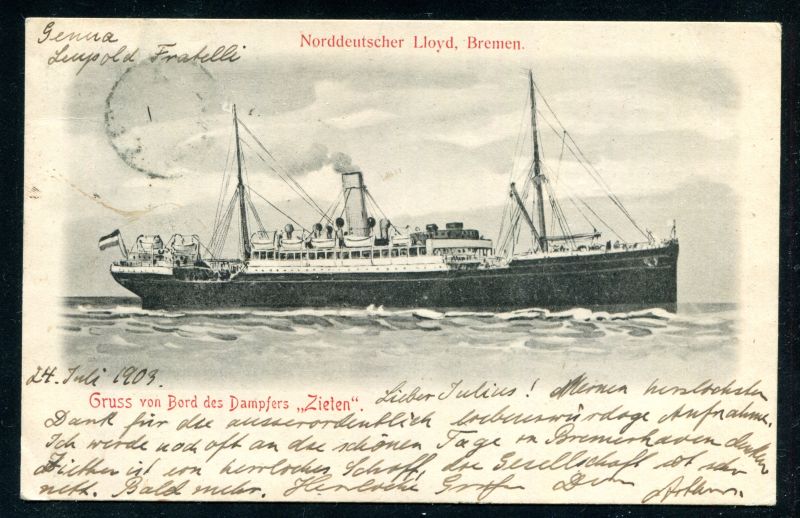 Genua
Leupold Fratelli
Norddeutscher Lloyd, Bremen.
24. Juli 1903.
Gruss von Bord des Dampfers „Zieten".
Lieber Julius! Meinen herzlichsten
Dank für die ausserordentlich liebenswürdige Aufnahme.
Ich werde noch oft an die schönen Tage in Bremerhaven denken
Ziethen ist ein herrliches Schiff, die Gesellschaft ist sehr
nett. Bald mehr. Herzliche Grüße Dein Arthur.